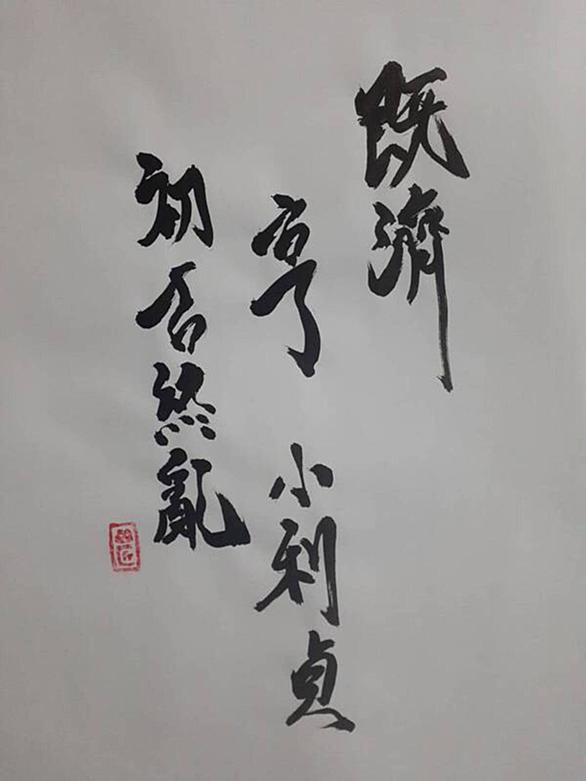 既濟
亨 小利貞
初否終亂